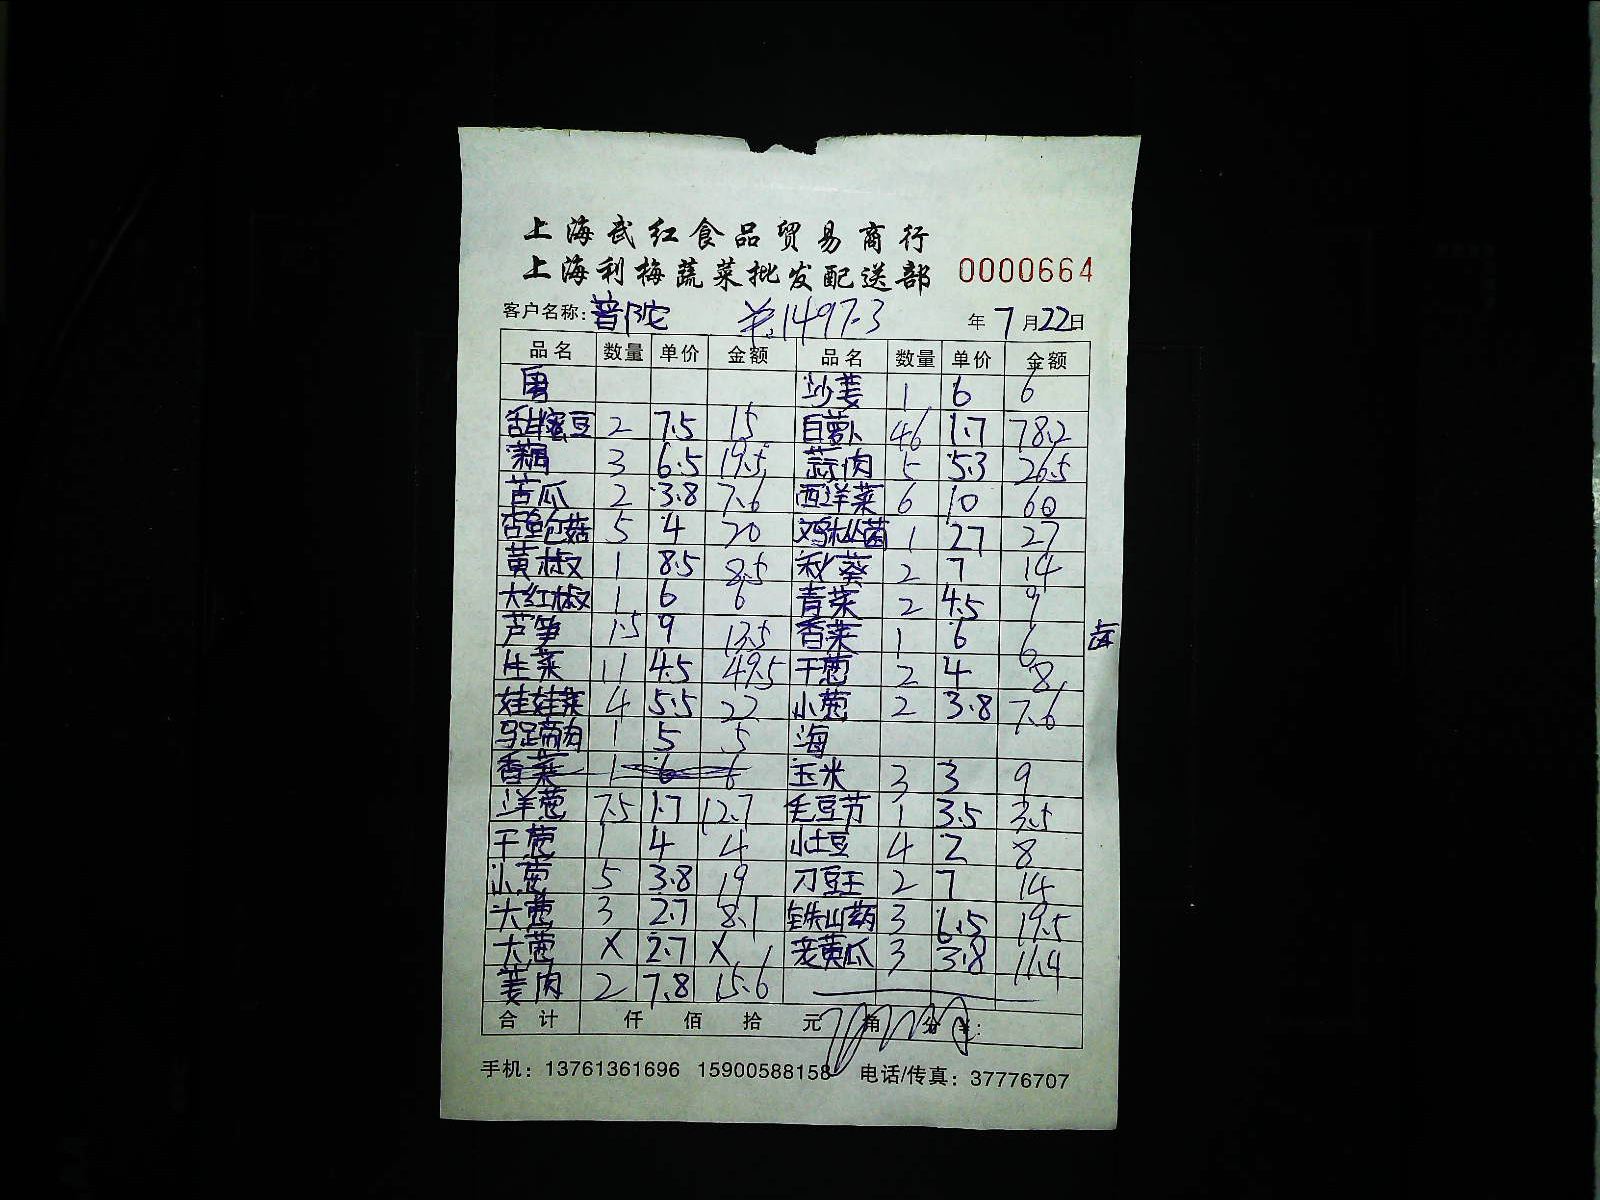 上海武红食品贸易商行
上海利梅蔬菜批发配送部 0000664
客户名称: 普陀 ¥:1497.3 年 7 月 22 日
品名 数量 单价 金额 品名 数量 单价 金额
沙姜 1 6 6
甜蜜豆 2 7.5 15 白萝卜 46 1.7 78.2
藕 3 6.5 19.5 蒜肉 5 5.3 26.5
苦瓜 2 3.8 7.6 西洋菜 6 10 60
杏鲍菇 5 4 20 鸡枞菌 1 27 27
黄椒 1 8.5 8.5 秋葵 2 7 14
大红椒 1 6 6 青菜 2 4.5 9
芦笋 1.5 9 13.5 香菜 1 6 6
生菜 11 4.5 49.5 干葱 2 4 8
娃娃菜 4 5.5 22 小葱 2 3.8 7.6
马蹄肉 1 5 5 海
香菜 1 6 6 玉米 3 3 9
洋葱 7.5 1.7 12.7 毛豆节 1 3.5 3.5
干葱 1 4 4 小土豆 4 2 8
小葱 5 3.8 19 刀豆王 2 7 14
大葱 3 2.7 8.1 铁山药 3 6.5 19.5
大葱 X 2.7 X 老黄瓜 3 3.8 11.4
姜肉 2 7.8 15.6
合计 仟 佰 拾 元 角 分 ¥:
手机：13761361696 15900588158 电话/传真：37776707